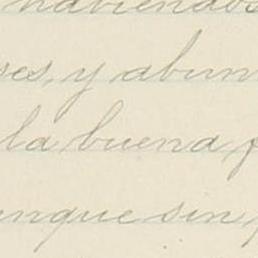 habiendo
ses, y abun
la buena f
unque sin p